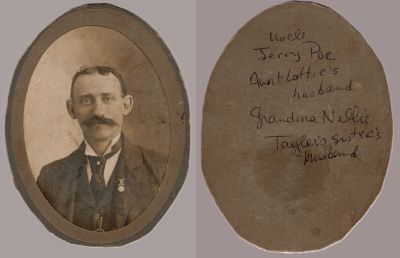 Uncle
Jerry Poe
Aunt Lottie's
husband
Grandma Nellie
Taylor's sister's
husband